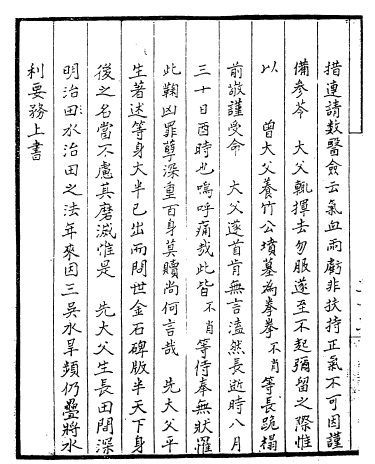 措連請数醫僉云氣血兩虧非扶持正氣不可因謹
備參苓　大父輒揮去勿服遂至不起彌留之際惟
以　曾大父養竹公墳墓為拳拳不肖等長跪榻
前敬謹受命　大父遂首肯無言溘然長逝時八月
三十日酉時也嗚呼痛哉此皆不肖等侍奉無狀罹
此鞠凶罪孽深重百身莫贖尚何言哉　先大父平
生著述等身大半已出而問世金石碑版半天下身
後之名當不慮其磨滅惟是　先大父生長田間深
明治田水治田之法年來因三吳水旱頻仍疊將水
利要務上書